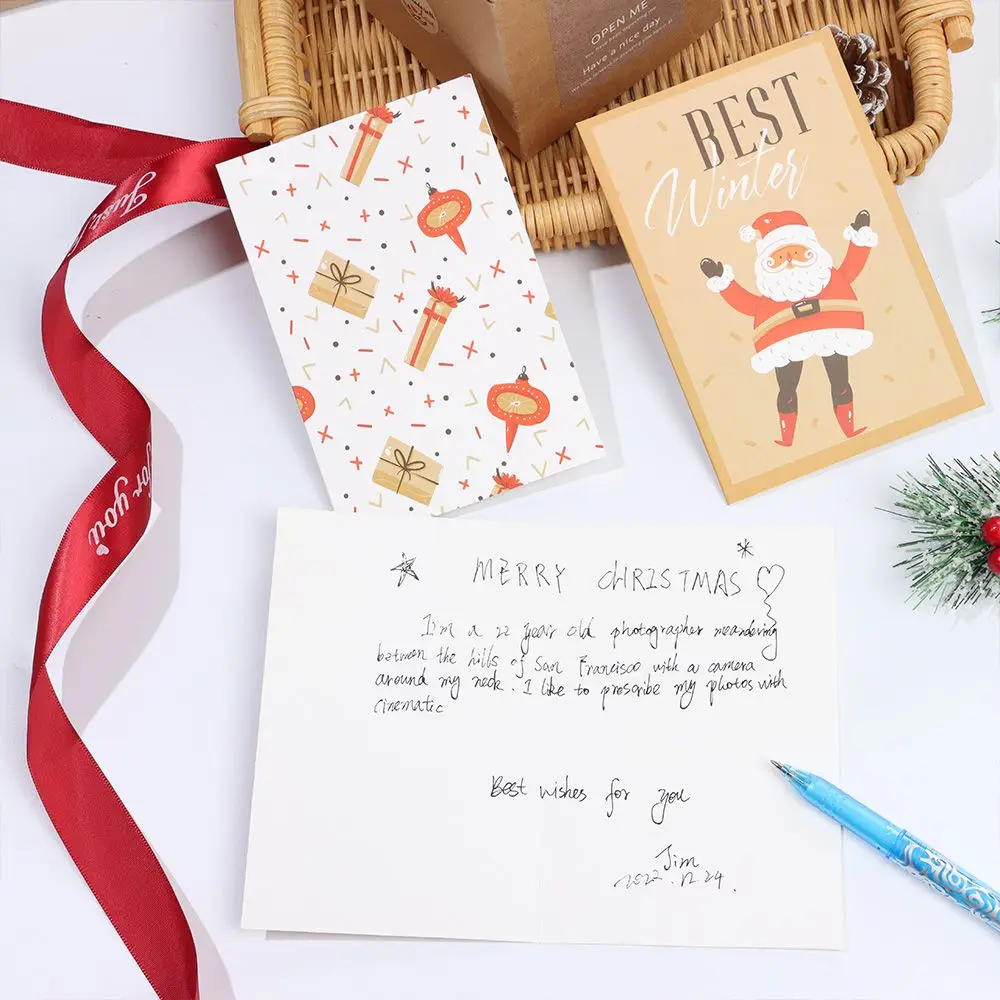 OPEN ME
Have a nice day
BEST
Winter
Just
for you
MERRY CHRISTMAS
I'm a 22 year old photographer meandering
between the hills of San Francisco with a camera
around my neck. I like to proscribe my photos with
cinematic
Best wishes for you
Jim
2022.12.24.